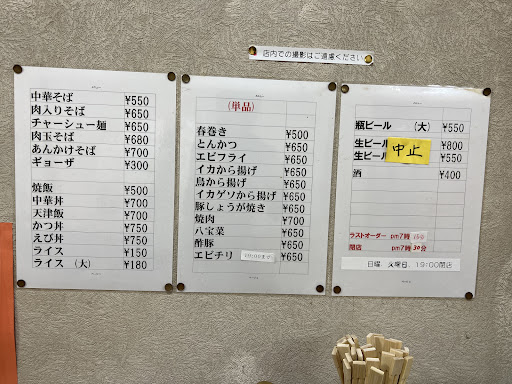 店内での撮影はご遠慮ください
中華そば ¥550
肉入りそば ¥650
チャーシュー麺 ¥650
肉玉そば ¥680
あんかけそば ¥700
ギョーザ ¥300
焼飯 ¥500
中華丼 ¥700
天津飯 ¥700
かつ丼 ¥750
えび丼 ¥750
ライス ¥150
ライス (大) ¥180
(単品)
春巻き ¥500
とんかつ ¥650
エビフライ ¥650
イカから揚げ ¥650
鳥から揚げ ¥650
イカゲソから揚げ ¥650
豚しょうが焼き ¥650
焼肉 ¥700
八宝菜 ¥650
酢豚 ¥650
エビチリ ¥650
瓶ビール (大) ¥550
生ビール ¥800
生ビール ¥550
中止
酒 ¥400
ラストオーダー pm7時
閉店 pm7時30分
日曜 火曜日 19:00閉店